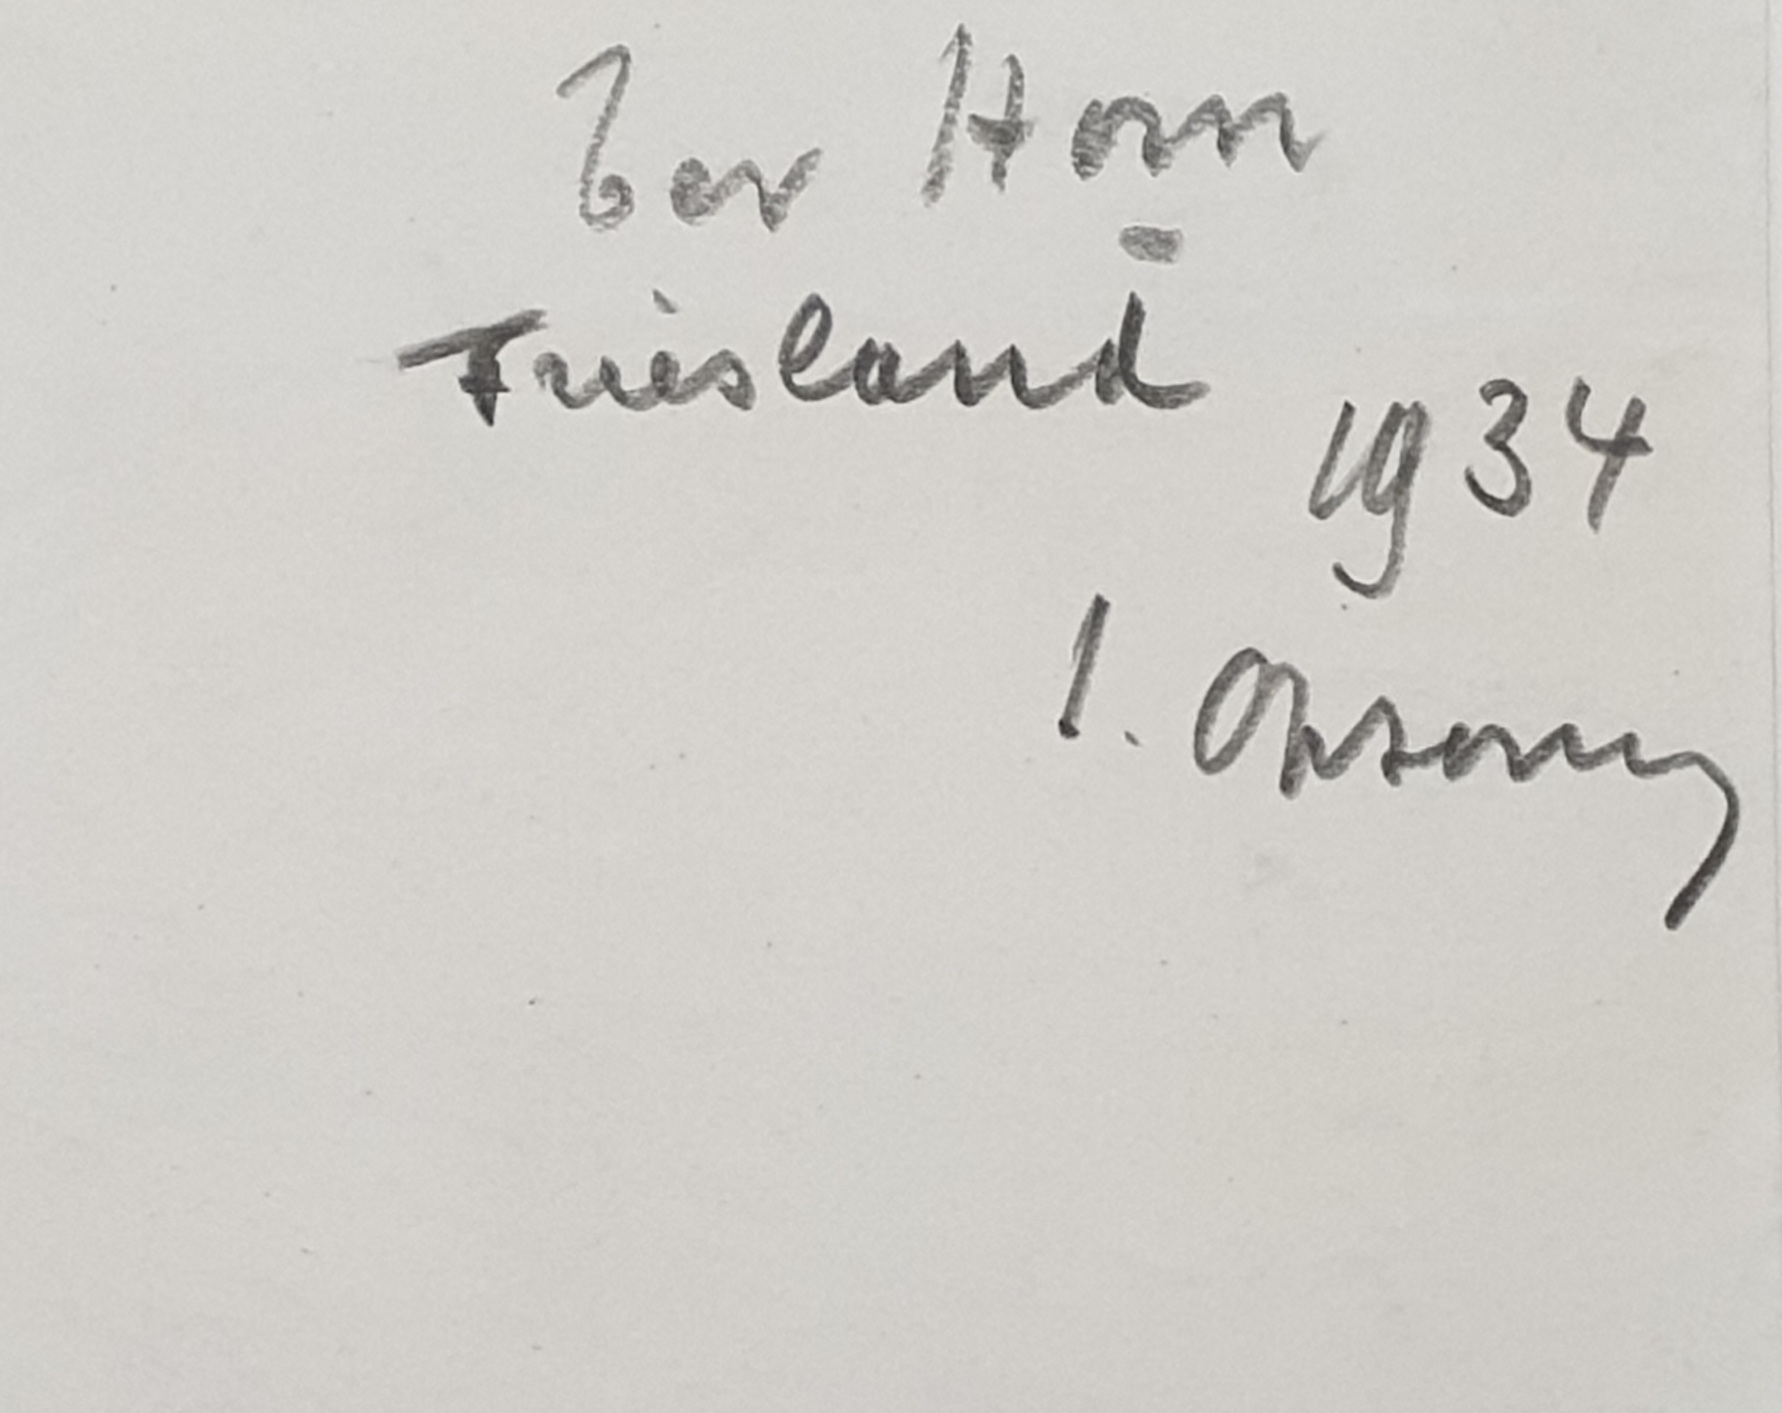 Ter Horn
-
Friesland
1934
I.